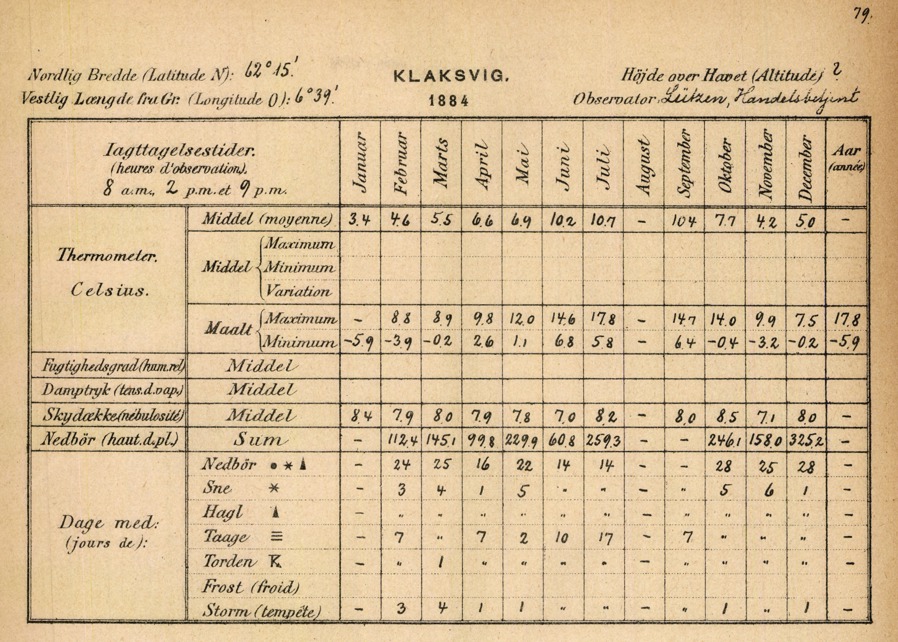 79.
Nordlig Bredde (Latitude N): 62° 15.' KLAKSVIG. Höjde over Havet (Altitude) ?
Vestlig Længde fra Gr. (Longitude O): 6° 39.' 1884 Observator: Lützen, Handelsbetjent
Iagttagelsestider. Januar Februar Marts April Mai Juni Juli August September Oktober November December Aar
(heures d'observation). (année)
8 a.m., 2 p.m. et 9 p.m.
Middel (moyenne) 3.4 4.6 5.5 6.6 6.9 10.2 10.7 – 10.4 7.7 4.2 5.0 –
Thermometer. Middel Maximum
Minimum
Celsius. Variation
Maalt Maximum – 8.8 8.9 9.8 12.0 14.6 17.8 – 14.7 14.0 9.9 7.5 17.8
Minimum –5.9 –3.9 –0.2 2.6 1.1 6.8 5.8 – 6.4 –0.4 –3.2 –0.2 –5.9
Fugtighedsgrad (hum.rel) Middel
Damptryk (tens.d.vap.) Middel
Skydække (nébulosité) Middel 8.4 7.9 8.0 7.9 7.8 7.0 8.2 – 8.0 8.5 7.1 8.0 –
Nedbör (haut.d.pl.) Sum – 112.4 145.1 99.8 229.9 60.8 259.3 – – 246.1 158.0 325.2 –
Nedbör – 24 25 16 22 14 14 – – 28 25 28 –
Sne – 3 4 1 5 " " – " 5 6 1 –
Hagl – " " " " " " – " " " " –
Dage med: Taage – 7 " 7 2 10 17 – 7 " " " –
(jours de): Torden – " 1 " " " " – " " " " –
Frost (froid)
Storm (tempête) – 3 4 1 1 " " – " 1 " 1 –